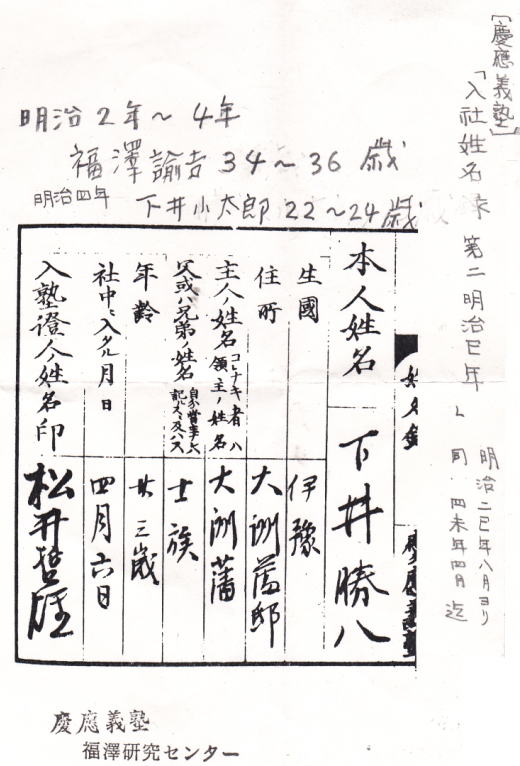 [慶應義塾]
「入社姓名录 第二明治巳年」
明治二巳年八月ヨリ
同 四未年四月迄
明治2年〜4年
福澤諭吉 34〜36歳
明治四年 下井小太郎 22〜24歳
姓名録
慶應義塾
本人姓名 下井勝八
生國 伊豫
住所 大洲藩邸
主人ノ姓名 コレナキ者ハ領主ノ姓名 大洲藩
父或ハ兄弟ノ姓名 士族
年齢 廿三歳
社中ヘ入タル月日 四月六日
入塾證人ノ姓名印 松井
慶應義塾
福澤研究センター